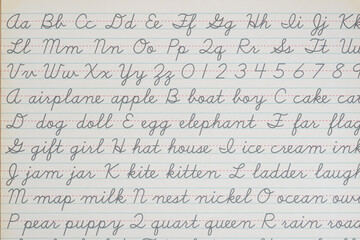 Aa Bb Cc Dd Ee Ff Gg Hh Ii Jj Kk
Ll Mm Nn Oo Pp Qq Rr Ss Tt Uu
Vv Ww Xx Yy Zz 0 1 2 3 4 5 6 7 8 9
A airplane apple B boat boy C cake cat
D dog doll E egg elephant F far flag
G gift girl H hat house I ice cream ink
J jam jar K kite kitten L ladder laugh
M map milk N nest nickel O ocean
P pear puppy Q quart queen R rain road